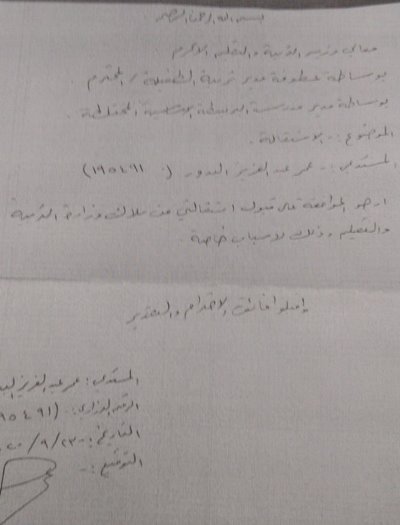 بسم الله الرحمن الرحيم
معالي وزير التربية والتعليم الاكرم
بوساطة عطوفة مدير تربية الطفيلة / المحترم .
بوساطة مدير مدرسة الاساسية المختلطة .
الموضوع :- الاستقالة .
المستدعي :- عمر عبد العزيز البدور ( ١٩٥٤٩١ )
ارجو الموافقة على قبول استقالتي من ملاك وزارة التربية
والتعليم وذلك لاسباب خاصة .
واقبلوا فائق الاحترام والتقدير
المستدعي : عمر عبد العزيز
الرقم الوزاري :- (٩٥٤٩١
التاريخ :- ٢٠ / ٩ /
التوقيع :-